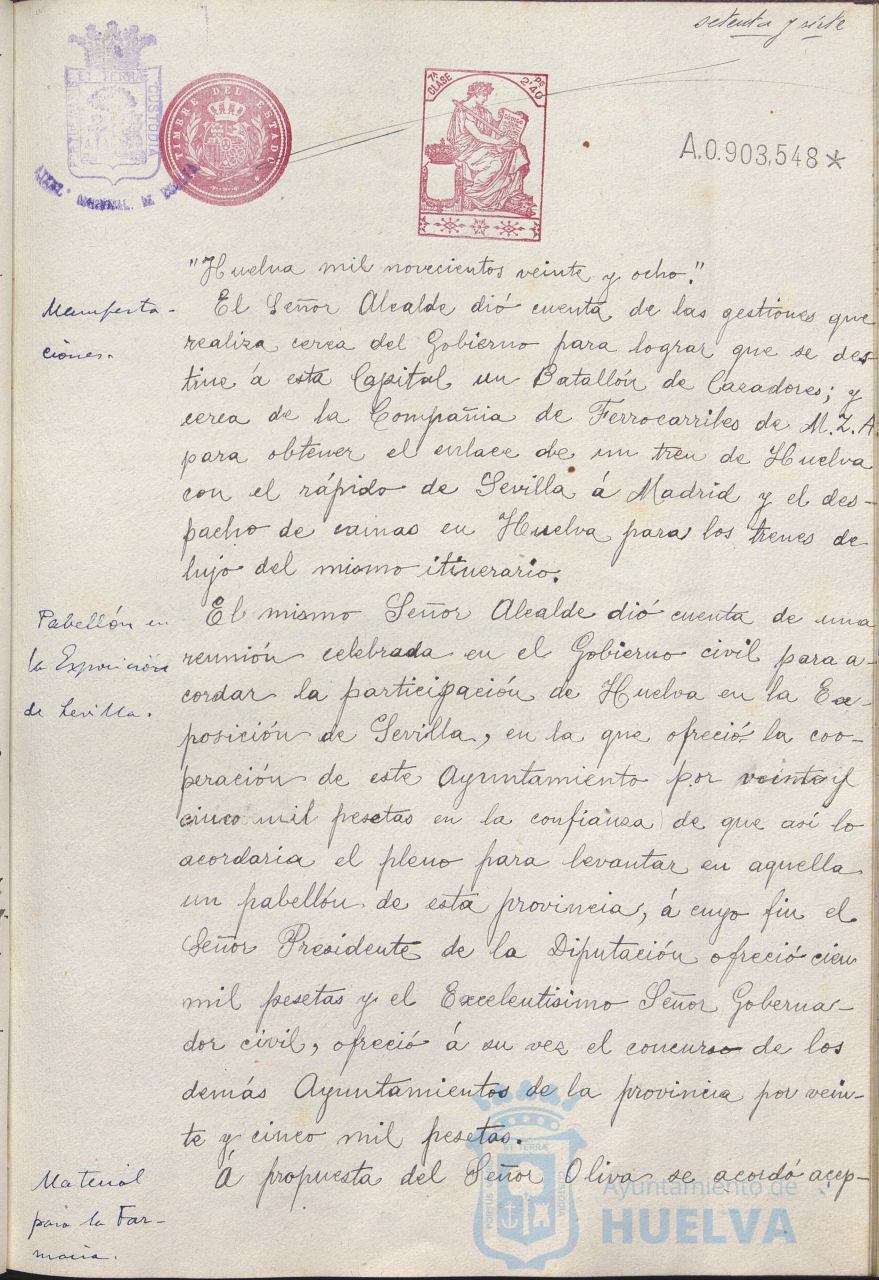 setenta y siete
ET TERRÆ
CUSTODIA
TIMBRE DEL ESTADO
7ª CLASE
2'40 PS
A.0.903,548*
"Huelva mil novecientos veinte y ocho."
Manifesta-
ciones.
El Señor Alcalde dió cuenta de las gestiones que
realiza cerca del Gobierno para lograr que se des-
tine á esta Capital un Batallón de Cazadores; y
cerca de la Compañia de Ferrocarriles de M.Z.A
para obtener el enlace de un tren de Huelva
con el rápido de Sevilla á Madrid y el des-
pacho de camas en Huelva para los trenes de
lujo del mismo itinerario.
Pabellón en
la Exposición
de Sevilla.
El mismo Señor Alcalde dió cuenta de una
reunión celebrada en el Gobierno civil para a-
cordar la participación de Huelva en la Ex-
posición de Sevilla, en la que ofreció la coo-
peración de este Ayuntamiento por veinte y
cinco mil pesetas en la confianza de que así lo
acordaria el pleno para levantar en aquella
un pabellón de esta provincia, á cuyo fin el
Señor Presidente de la Diputación ofreció cien
mil pesetas y el Excelentisimo Señor Goberna-
dor civil, ofreció á su vez el concurso de los
demás Ayuntamientos de la provincia por vein-
te y cinco mil pesetas.
Material
para la Far-
macia.
Á propuesta del Señor Oliva se acordó acep-
ET TERRÆ
PORTUS
CUSTODIA
Ayuntamiento de
HUELVA